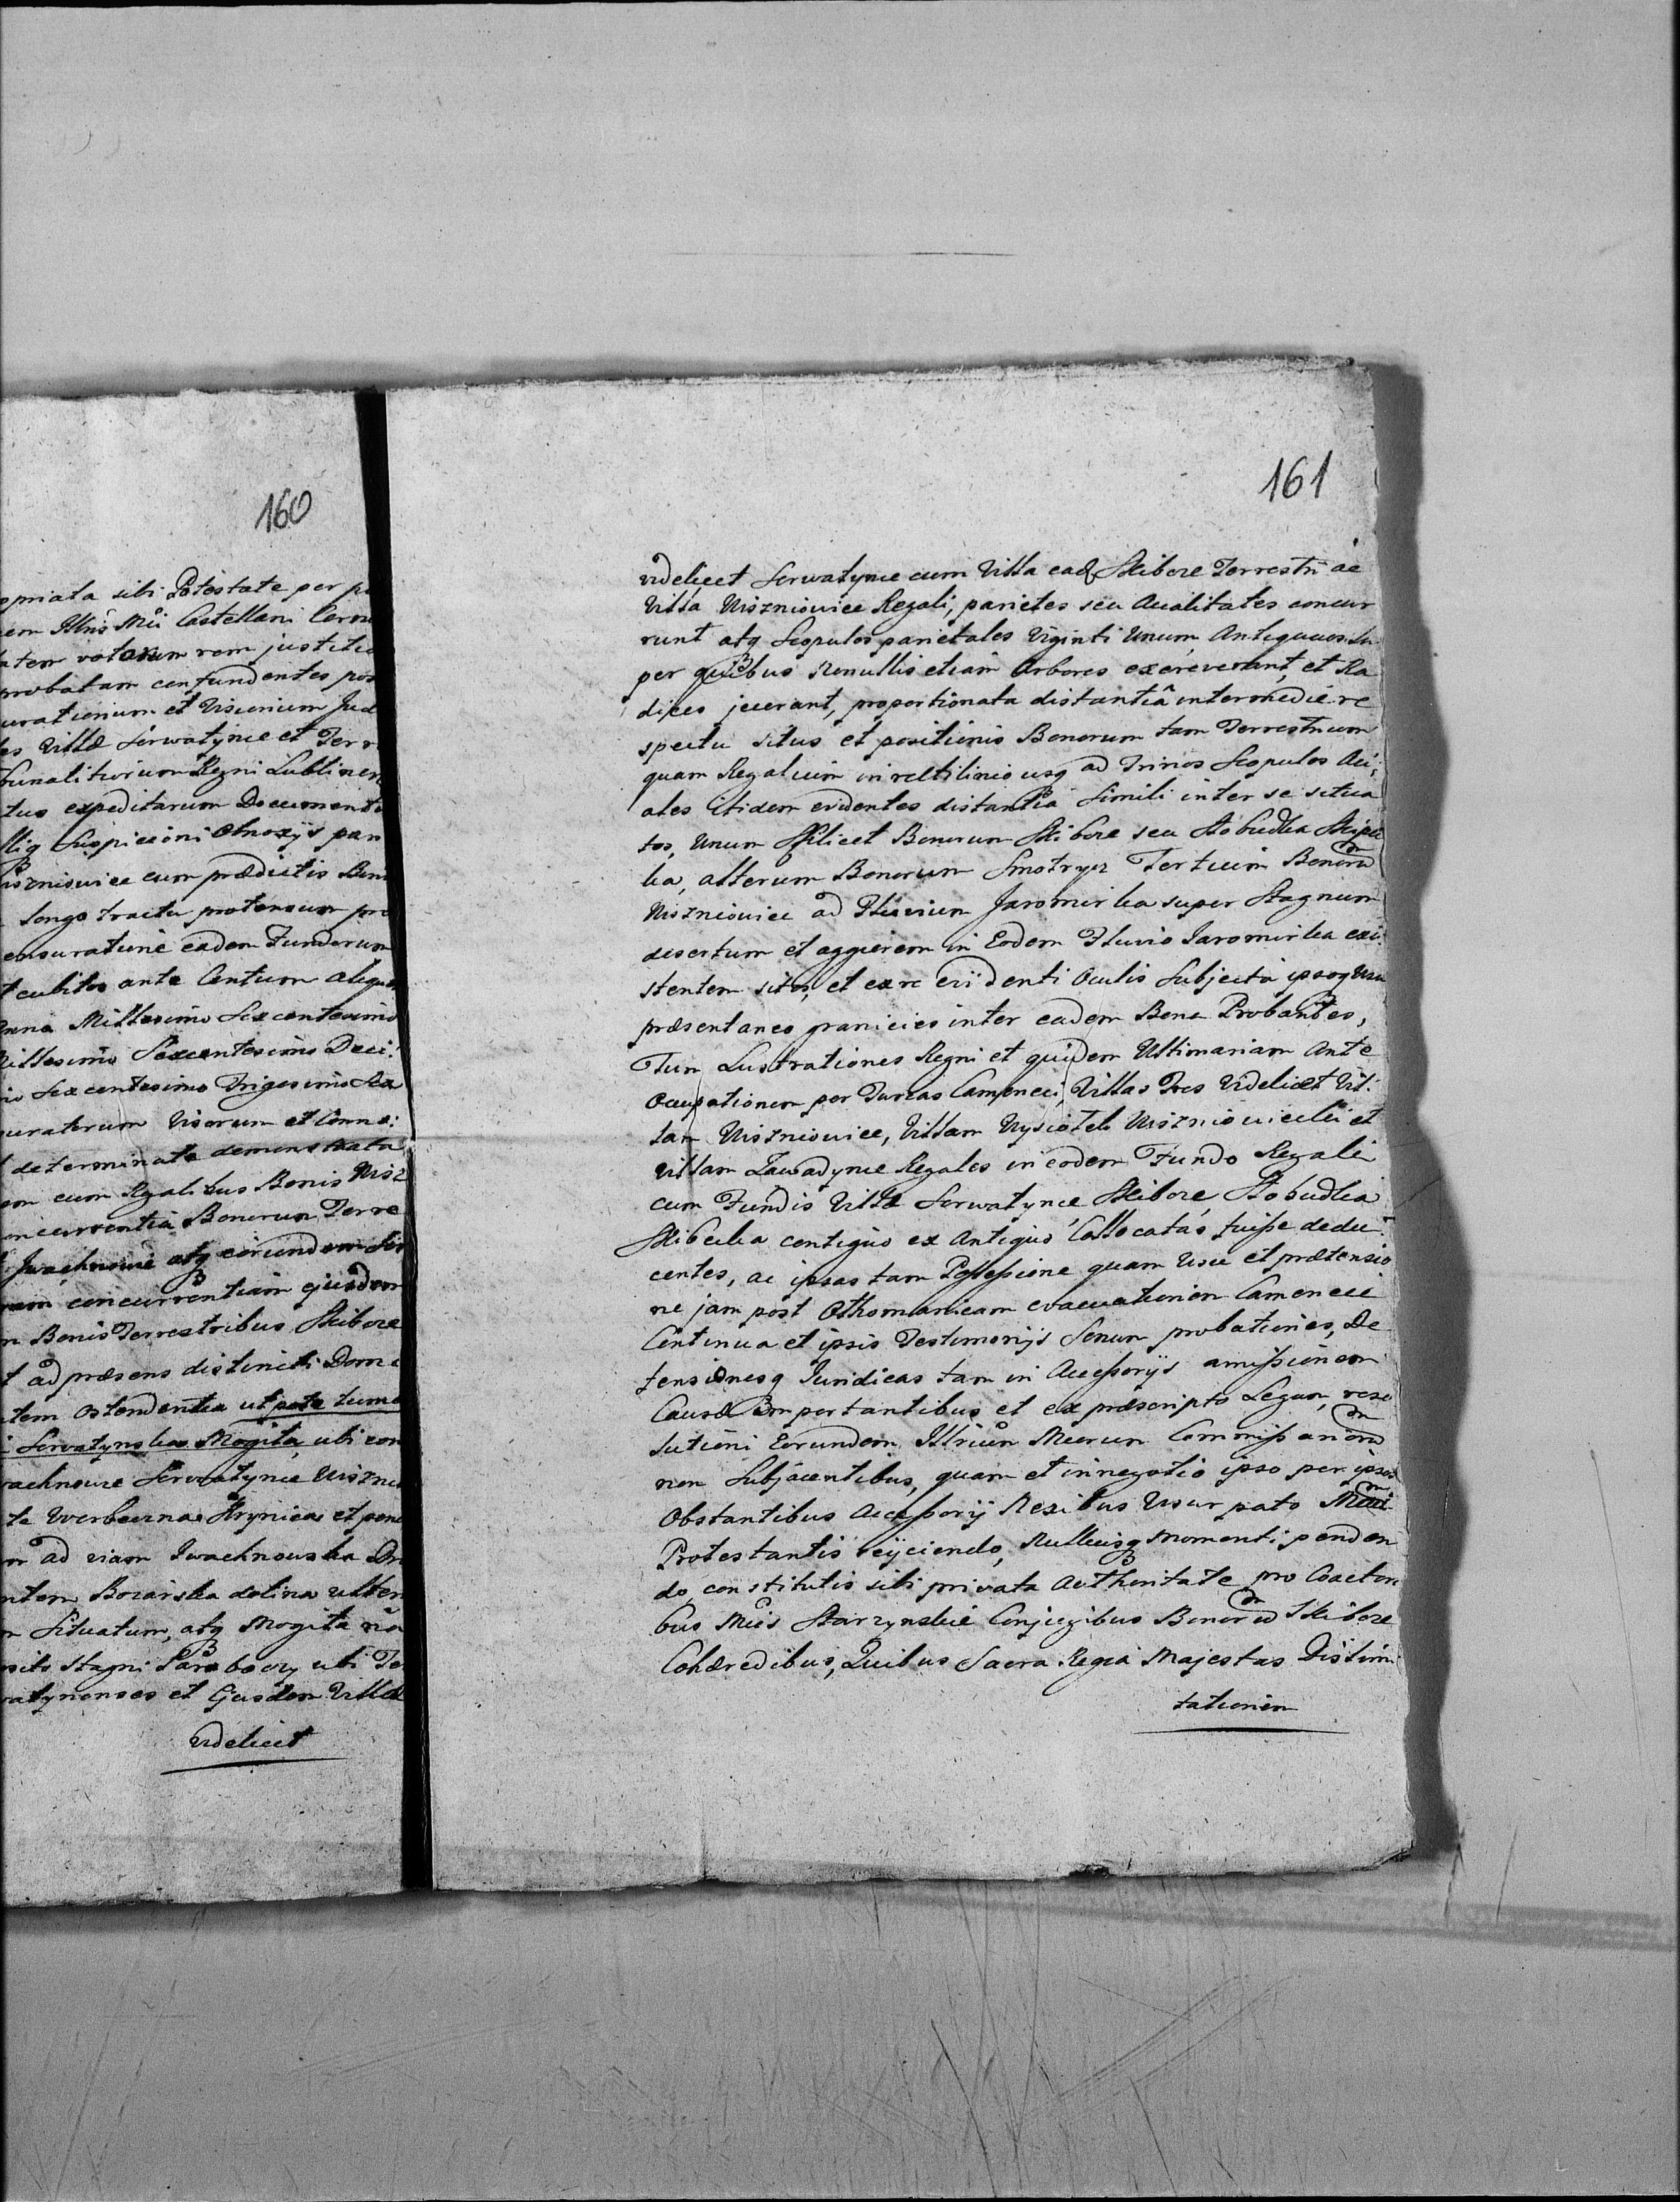 160
opriata sibi Potestate per
em Illris Mci Castellani
atem votorum rem justitia
probatam confundentes pos
urationum et Visionum Jud
es Villæ Serwatynce et Terr
bunalitiorum Regni Lublinen
tus expeditarum Documenti
lliq Suspicioni Obnoxijs pari
iszniowice cum prædictis Bon
longo tractu protensum pro
ensuratione eadem Fundorum
t cubitos ante Centum aliquot
Anno Millesimo Sexcentesimo
Millesimo Sexcentesimo Deci:
io Sexcentesimo Trigesimo Sex
uratorum Visorum et Conne:
determinata demonstrata
em cum Regalibus Bonis Wisz
oncurrentia Bonorum Terre
Jwachnowie atq eorundem Ser
ram concurrentiam ejusdem
n Bonis Terrestribus Skibore
t ad præsens distincti Domi
tem Ostendentia utpote tumu
i Serwatynska Mogiła, ubi con
wachnowce Serwatynce Wiszni
te Werbowna Krynica et pone
m ad viam Iwachnowska
ntem Bozarska dolina ulter
m Situatum, atq Mogiła
Stagni ubi Te
watynenses et Ejusdem Villæ
videlicet
161
videlicet Serwatynce cum Villa eaq Skibore Terrestri ac
Villa Wiszniowice Regali, parietes seu Acialitates concur
runt atq Scopulos parietales Viginti Unum, Antiquos Su
per quibus Nonullis etiam Arbores excreverant, et Ra
dices jecerant, proportionata distantiâ intermedie re
spectu situs et positionis Bonorum tam Terrestrium
quam Regalium in rectilinio usq ad Trinos Scopulos Aci:
ales itidem evidentes distantiâ Simili inter se situa
tos, Unum Skilicet Bonorum Skibore seu Słobudka Skipec
ka, alterum Bonorum Smotrycz Tertium Bonoru
Wiszniowice ad Fluvium Jaromirka super Stagnum
desertum et aggerem in Eodem Fluvio Jaromirka exi:
stentem sitos, et ex re evidenti Oculis Subjecta ipsoq Usu
præsentaneo granicies inter eadem Bona Probantes,
Tum Lustrationes Regni et quidem Ultimariam Ante
Occupationem per Turcas Cameneci, Villas Tres Videlicet Vil:
lam Wiszniowice, Villam Wysiołek Wiszniowiecki et
Villam Zawadynce Regales in eodem Fundo Regali
cum Fundis Villæ Serwatynce, Skibore, Słobudka
Skibecka contiguo ex Antiquo Collocatas fuisse dedu:
centes, ac ipsas tam Possessione quam Usu et prætensio
ne jam post Othomanicam evacuationem Camenecii
Continua et ipsis Testimonijs Senum probationes, De
fensionesq Iuridicas tam in Accessorijs amissionem
Causæ Importantibus et ex præscripto Legum, reso
lutioni Eorundem Illrium Mcorum Commissarioru
non Subjacentibus, quam et in negotio ipso per ipsos
Obstantibus Accessorij Nexibus Usurpato
Protestantis rejiciendo, Nulliusq Momenti penden
do, constitutis sibi privata Authoritate pro Coactori
bus Mcis Starzynskie Conjugibus Bonoru Skibore
Cohæredibus, Quibus Sacra Regia Majestas Dislimi
tationem